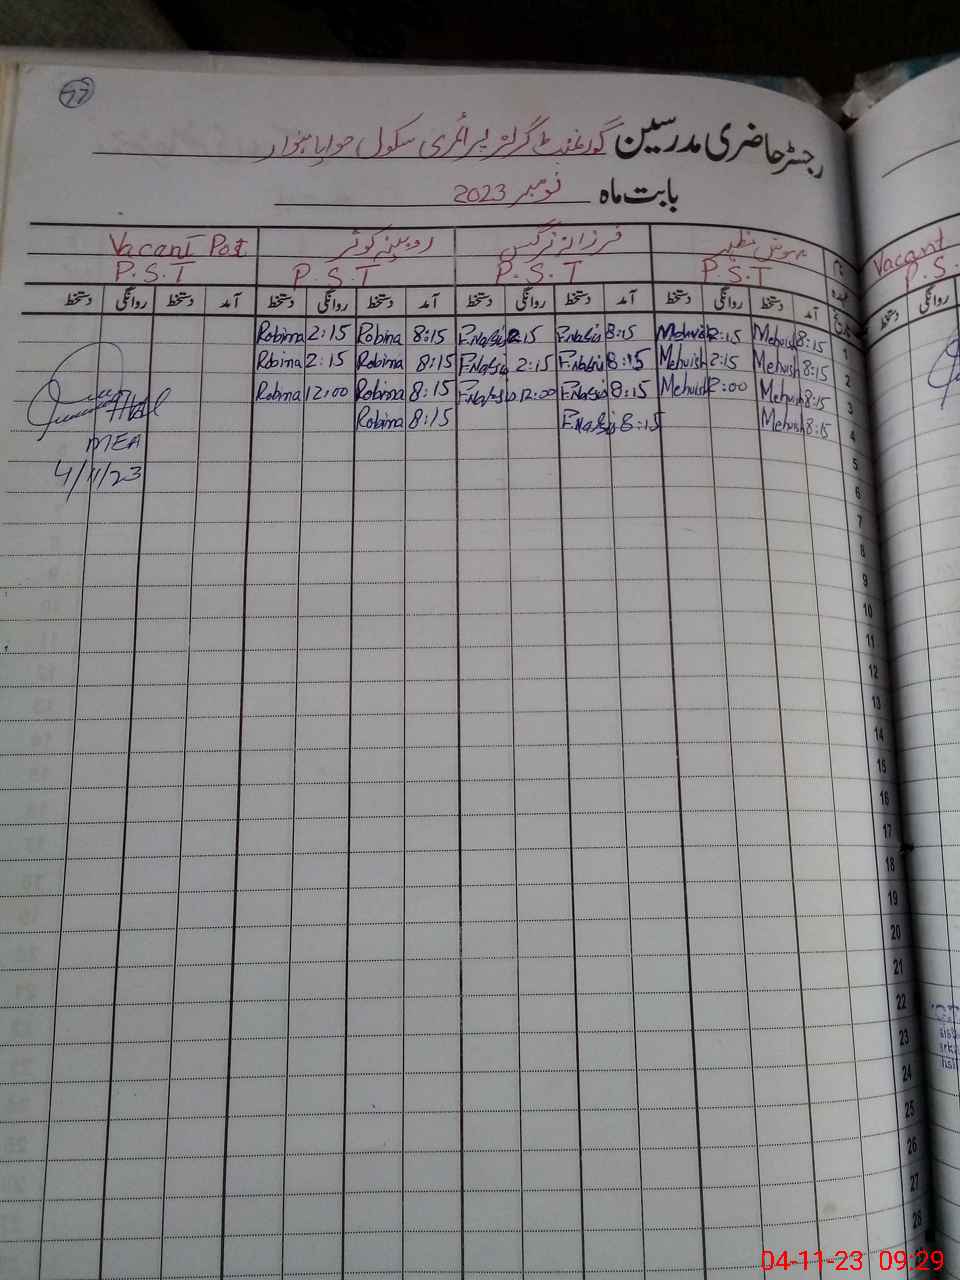 57
رجسٹر حاضری مدرسین گورنمنٹ گرلز پرائمری سکول
بابت ماہ نومبر 2023
نام مہوش فرزانہ نرگس روبینہ کوثر Vacant Post
عہدہ P.S.T P.S.T P.S.T P.S.T
آمد دستخط روانگی دستخط آمد دستخط روانگی دستخط آمد دستخط روانگی دستخط آمد دستخط روانگی دستخط
1 8:15 Mehwish 2:15 Mehwish 8:15 F.Nargis 2:15 F.Nargis 8:15 Robina 2:15 Robina
2 8:15 Mehwish 2:15 Mehwish 8:15 F.Nargis 2:15 F.Nargis 8:15 Robina 2:15 Robina
3 8:15 Mehwish 12:00 Mehwish 8:15 F.Nargis 12:00 F.Nargis 8:15 Robina 12:00 Robina
4 8:15 Mehwish 8:15 F.Nargis 8:15 Robina
MEA
4/11/23
5
6
7
8
9
10
11
12
13
14
15
16
17
18
19
20
21
22
23
24
25
26
27
28
Vacant
P.S.
روانگی دستخط
04-11-23 09:29